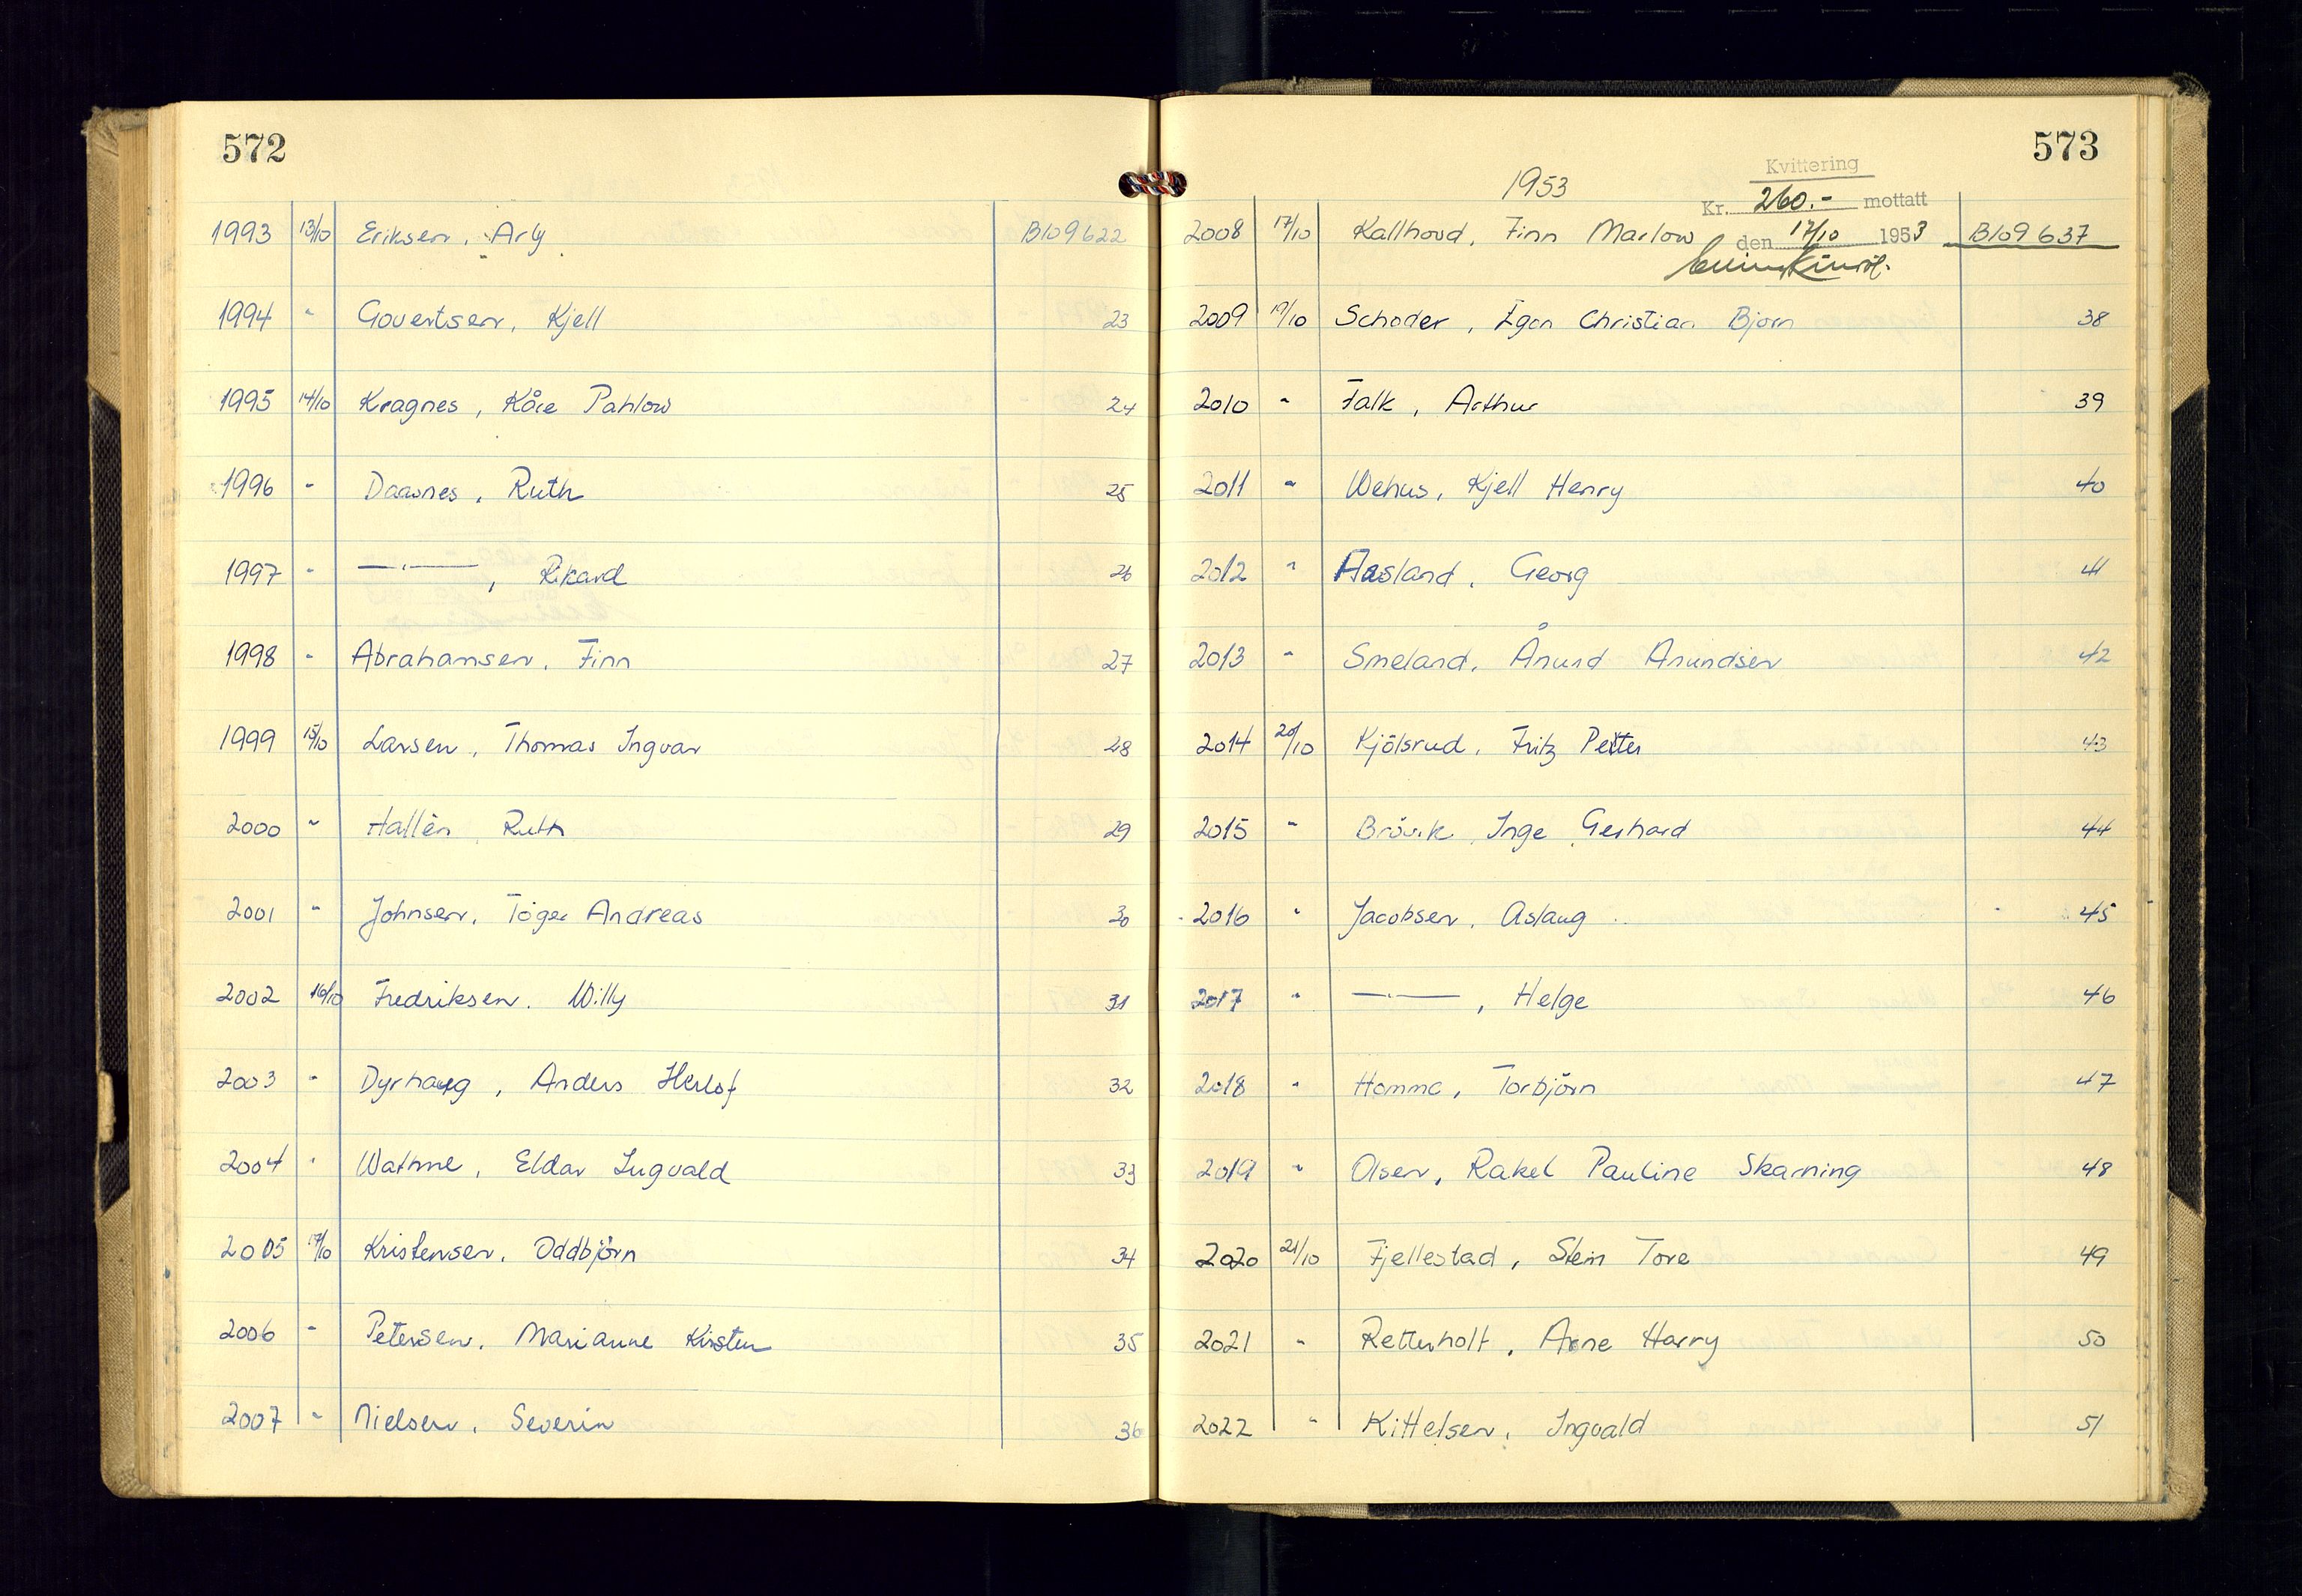 572
1993 13/10 Eriksen, Arly B109622
1994 " Govertsen, Kjell 23
1995 14/10 Kragnes, Kåre Pahlow 24
1996 " Daasnes, Ruth 25
1997 " —"—, Rikard 26
1998 " Abrahamsen, Finn 27
1999 15/10 Larsen, Thomas Ingvar 28
2000 " Hallén, Ruth 29
2001 " Johnsen, Töger Andreas 30
2002 16/10 Fredriksen, Willy 31
2003 " Dyrhaug, Anders Herlof 32
2004 " Wathne, Eldar Ingvald 33
2005 17/10 Kristensen, Oddbjörn 34
2006 " Petersen, Marianne Kirsten 35
2007 " Nielsen, Severin 36
573
1953
Kvittering
Kr. 260.- mottatt
den 17/10 1953
2008 17/10 Kallhovd, Finn Marlow B109637
2009 19/10 Schoder, Egon Christian Bjørn 38
2010 " Falk, Arthur 39
2011 " Wehus, Kjell Henry 40
2012 " Aasland, Georg 41
2013 " Smeland, Ånund Anundsen 42
2014 20/10 Kjölsrud, Fritz Petter 43
2015 " Brövik, Inge Gerhard 44
2016 " Jacobsen, Aslaug 45
2017 " —"—, Helge 46
2018 " Homme, Torbjörn 47
2019 " Olsen, Rakel Pauline Skarning 48
2020 21/10 Fjellestad, Stein Tore 49
2021 " Retterholt, Arne Harry 50
2022 " Kittelsen, Ingvald 51